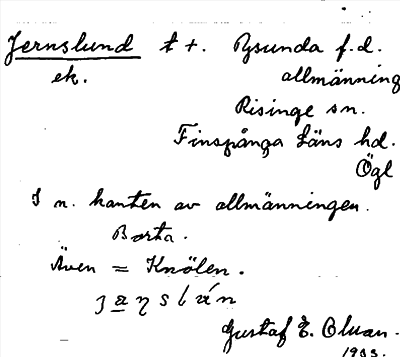 Jernslund t +. Rysunda f.d.
ek. allmänning
Risinge sn.
Finspånga Läns hd.
Ögl
I n. kanten av allmänningen.
Borta.
Även = Knölen.
Gustaf E.
1933.